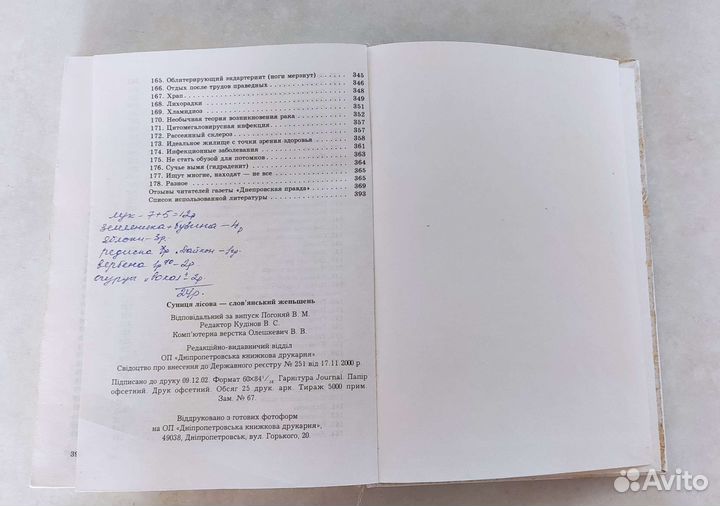 165. Облитерирующий эндартериит (ноги мерзнут) 345
166. Отдых после трудов праведных 346
167. Храп 348
168. Лихорадки 349
169. Хламидиоз 351
170. Необычная теория возникновения рака 352
171. Цитомегаловирусная инфекция 357
172. Рассеянный склероз 357
173. Идеальное жилище с точки зрения здоровья 358
174. Инфекционные заболевания 361
175. Не стать обузой для потомков 363
176. Сучье вымя (гидраденит) 364
177. Ищут многие, находят — не все 365
178. Разное 365
Отзывы читателей газеты «Днепровская правда» 369
Список использованной литературы 393
лук - 7+5=12р
земляника + бузина - 4р
яблоки - 3р.
редиска
вербена - 2р
огурцы - 2р.
24р.
Суниця лісова — слов'янський женьшень
Відповідальний за випуск Погоняй В. М.
Редактор Кудінов В. С.
Комп'ютерна верстка Олешкевич В. В.
Редакційно-видавничий відділ
ОП «Дніпропетровська книжкова друкарня»
Свідоцтво про внесення до Державного реєстру № 251 від 17.11.2000 р.
Підписано до друку 09.12.02. Формат 60×84¹/₁₆. Гарнітура Journal. Папір
офсетний. Друк офсетний. Обсяг 25 друк. арк. Тираж 5000 прим.
Зам. № 67.
Віддруковано з готових фотоформ
на ОП «Дніпропетровська книжкова друкарня»,
49038, Дніпропетровськ, вул. Горького, 20.
39
Avito